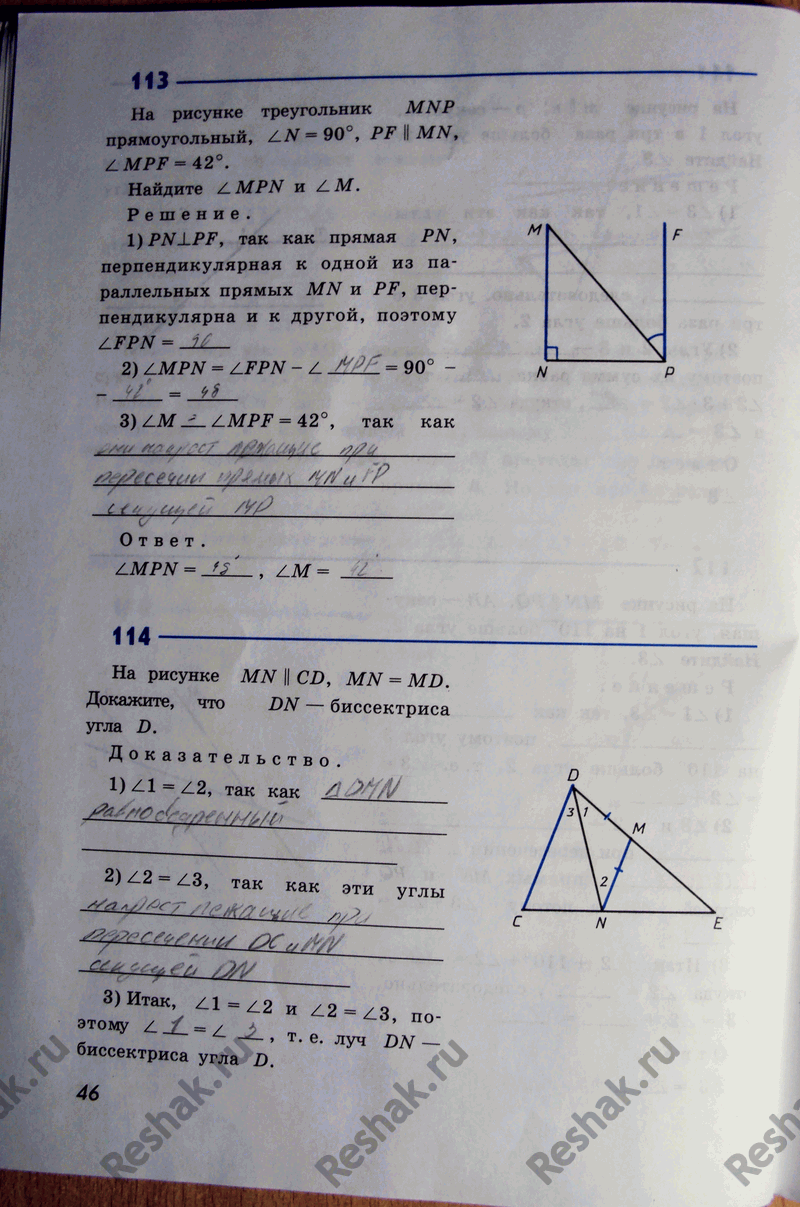 113
На рисунке треугольник MNP
прямоугольный, ∠N = 90°, PF ∥ MN,
∠MPF = 42°.
Найдите ∠MPN и ∠M.
Решение.
1) PN⊥PF, так как прямая PN,
перпендикулярная к одной из па-
раллельных прямых MN и PF, пер-
пендикулярна и к другой, поэтому
∠FPN = 90
2) ∠MPN = ∠FPN – ∠ MPF = 90° –
– 42° = 48
3) ∠M = ∠MPF = 42°, так как
они накрест лежащие при
пересечении прямых MN и FP
секущей MP
Ответ.
∠MPN = 48°, ∠M = 42°
M
F
N
P
114
На рисунке MN ∥ CD, MN = MD.
Докажите, что DN — биссектриса
угла D.
Доказательство.
1) ∠1 = ∠2, так как △DMN
равнобедренный
2) ∠2 = ∠3, так как эти углы
накрест лежащие при
пересечении DC и MN
секущей DN
3) Итак, ∠1 = ∠2 и ∠2 = ∠3, по-
этому ∠ 1 = ∠ 3, т. е. луч DN —
биссектриса угла D.
D
3
1
M
2
C
N
E
46
Reshak.ru
Reshak.ru
Reshak.ru
Reshak.ru